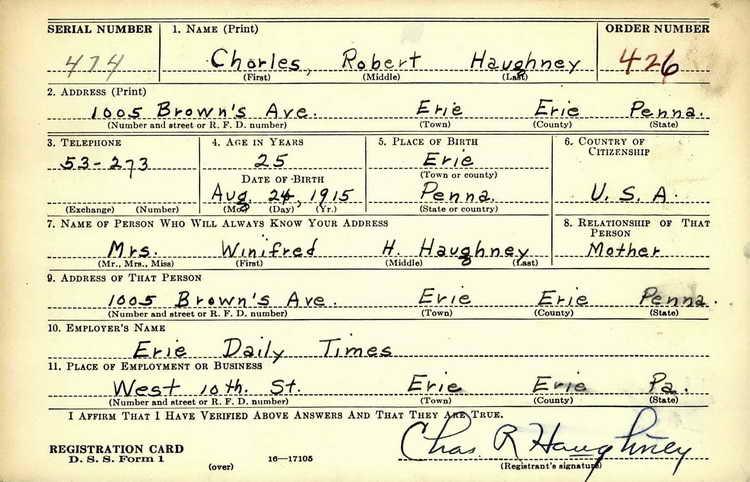 SERIAL NUMBER 1. NAME (Print) ORDER NUMBER
474 Charles, Robert Haughney 426
(First) (Middle) (Last)
2. ADDRESS (Print)
1005 Brown's Ave. Erie Erie Penna.
(Number and street or R. F. D. number) (Town) (County) (State)
3. TELEPHONE 4. AGE IN YEARS 5. PLACE OF BIRTH 6. COUNTRY OF CITIZENSHIP
53-273 25 Erie
DATE OF BIRTH (Town or county)
Aug. 24, 1915 Penna. U. S. A.
(Exchange) (Number) (Mo.) (Day) (Yr.) (State or country)
7. NAME OF PERSON WHO WILL ALWAYS KNOW YOUR ADDRESS 8. RELATIONSHIP OF THAT PERSON
Mrs. Winifred H. Haughney Mother
(Mr., Mrs., Miss) (First) (Middle) (Last)
9. ADDRESS OF THAT PERSON
1005 Brown's Ave. Erie Erie Penna.
(Number and street or R. F. D. number) (Town) (County) (State)
10. EMPLOYER'S NAME
Erie Daily Times
11. PLACE OF EMPLOYMENT OR BUSINESS
West 10th. St. Erie Erie Pa.
(Number and street or R. F. D. number) (Town) (County) (State)
I AFFIRM THAT I HAVE VERIFIED ABOVE ANSWERS AND THAT THEY ARE TRUE.
REGISTRATION CARD Chas R Haughney
D. S. S. Form 1 (over) 16—17105 (Registrant's signature)